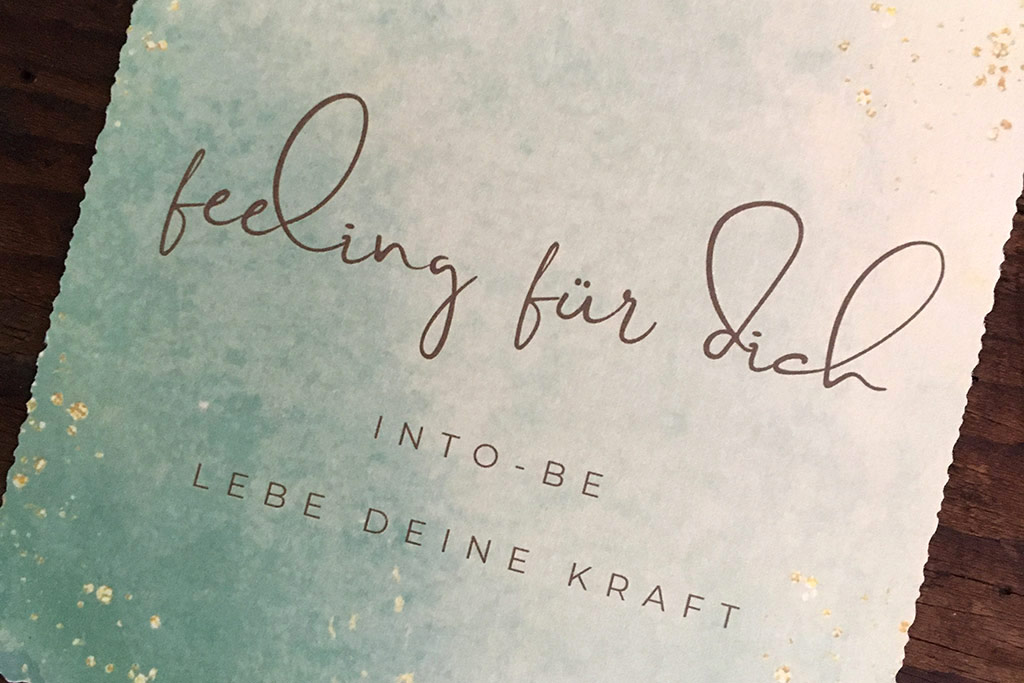 feeling für dich
INTO-BE
LEBE DEINE KRAFT